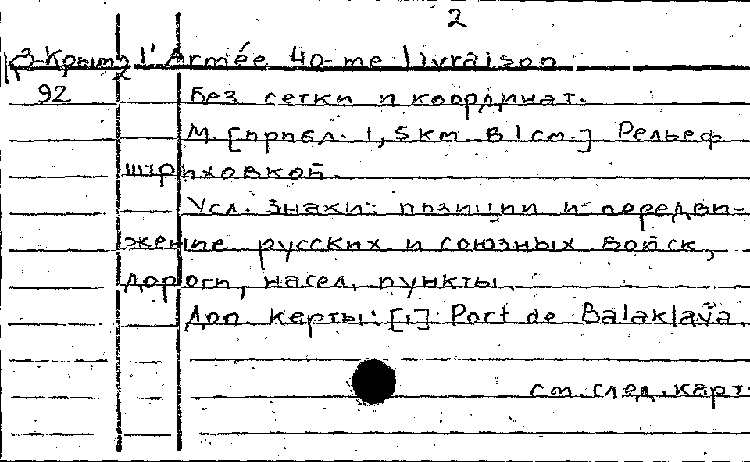 2
К3-Крым 2 l'Armée 40-me livraison
92 Без сетки и координат.
М. [прибл. 1,5 км в 1 см.] Рельеф
штриховкой.
Усл. знаки: позиции и передви-
жение русских и союзных войск,
дороги, насел. пункты.
Доп. карты: [1] Port de Balaklava.
см. след. карт.